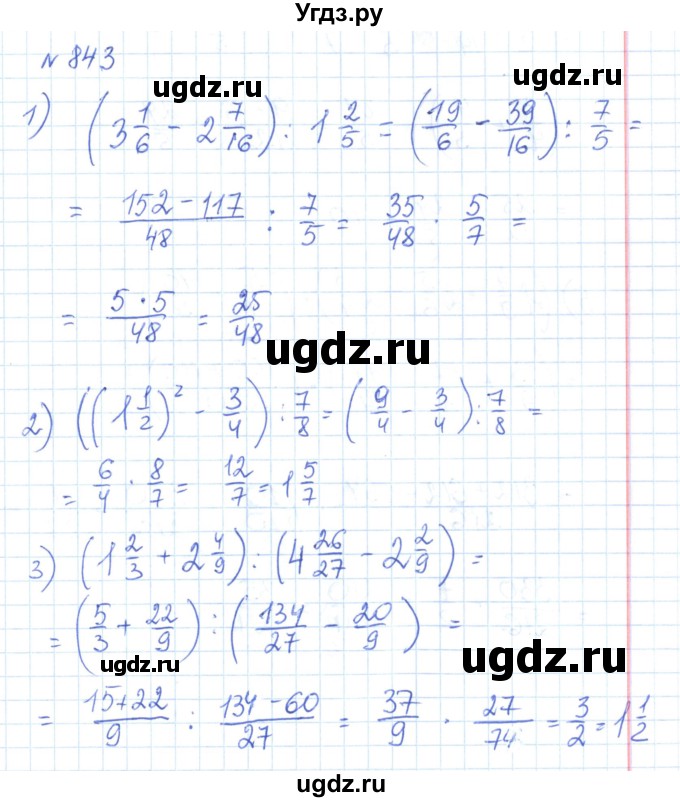 Угдз.ру
№ 843
ugdz.ru
1) (3 1/6 - 2 7/16) : 1 2/5 = (19/6 - 39/16) : 7/5 =
ugdz.ru
= (152-117)/48 : 7/5 = 35/48 · 5/7 =
= (5·5)/48 = 25/48
ugdz.ru
2) ((1 1/2)² - 3/4) : 7/8 = (9/4 - 3/4) : 7/8 =
= 6/4 · 8/7 = 12/7 = 1 5/7
ugdz.ru
3) (1 2/3 + 2 4/9) : (4 26/27 - 2 2/9) =
= (5/3 + 22/9) : (134/27 - 20/9) =
ugdz.ru
ugdz.ru
= (15+22)/9 : (134-60)/27 = 37/9 · 27/74 = 3/2 = 1 1/2
ugdz.ru